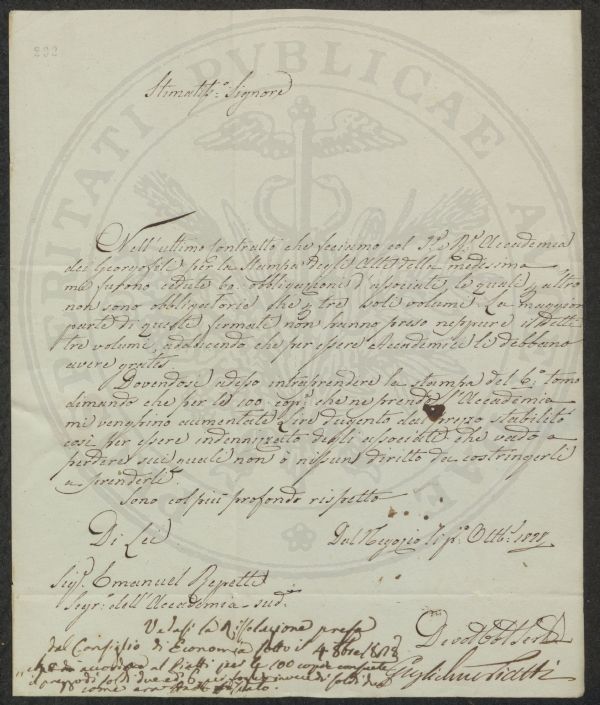 232
Stimatiss.º Signore
Nell'ultimo contratto che facemmo col I. e R.e Accademia
dei Georgofili per la Stampa degli Atti della medesima
me furono cedute 62 obbligazioni d'associati, le quali p. altro
non sono obbligatorie che p. tre soli volumi. La maggior
parte di queste firmate non hanno preso neppure i detti
tre volumi, adducendo che per essere Accademici li debbano
avere gratis.
Dovendosi adesso intraprendere la stampa del 6.º tomo
dimando che per le 100 copie che ne prende l'Accademia
mi venghino aumentate Lire dugento dal prezzo stabilito
così per essere indennizzato degli associati che vado a
perdere sui quali non ò nissun diritto da costringerli
a prenderli.
Sono col più profondo rispetto
Di Lei
Dal Negozio li p.º Ottb. 1828
Sig.r Emanuel Repetti
Segr.º dell'Accademia sud.a
Devot. Obb. Serv.
Guglielmo Piatti
Vedasi la Risoluzione presa
dal Consiglio di Economia sotto i 4 8bre 1828
accordare al Piatti per le 100 copie
il prezzo di soldi due e invece di soldi due
come era
PUBLICAE